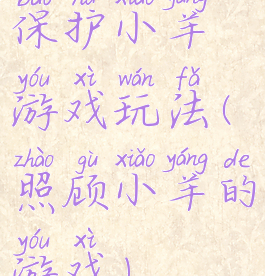 bǎo hù xiǎo yáng
保护小羊
yóu xì wán fǎ
游戏玩法(
zhào gù xiǎo yáng de
照顾小羊的
yóu xì
游戏)